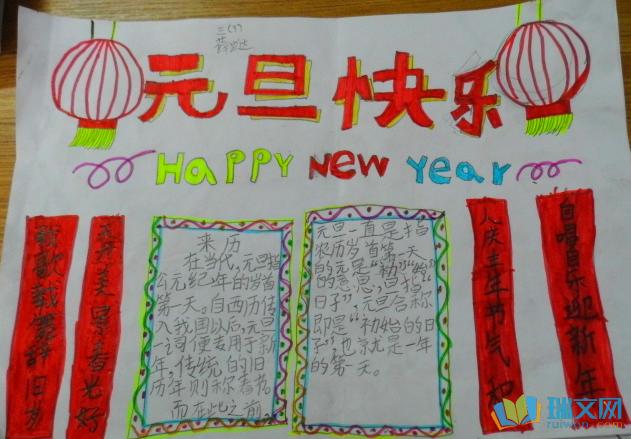 三(7)
元旦快乐
HaPPY NeW Year
载歌载舞辞旧岁
来历
在当代，元旦指
公元纪年的岁首
第一天。自西历传
入我国以后，元旦
一词便专用于新
年，传统的旧
历年则称春节。
而在此之前，
元旦一直是指
农历岁首第一天
的。元是“初”“始”
的意思，旦指“
日子”，元旦合称
即是“初始的日
子”，也就是一年
的第一天。
人庆丰年节气和
自唱音乐迎新年
瑞文网
ruiwen.com